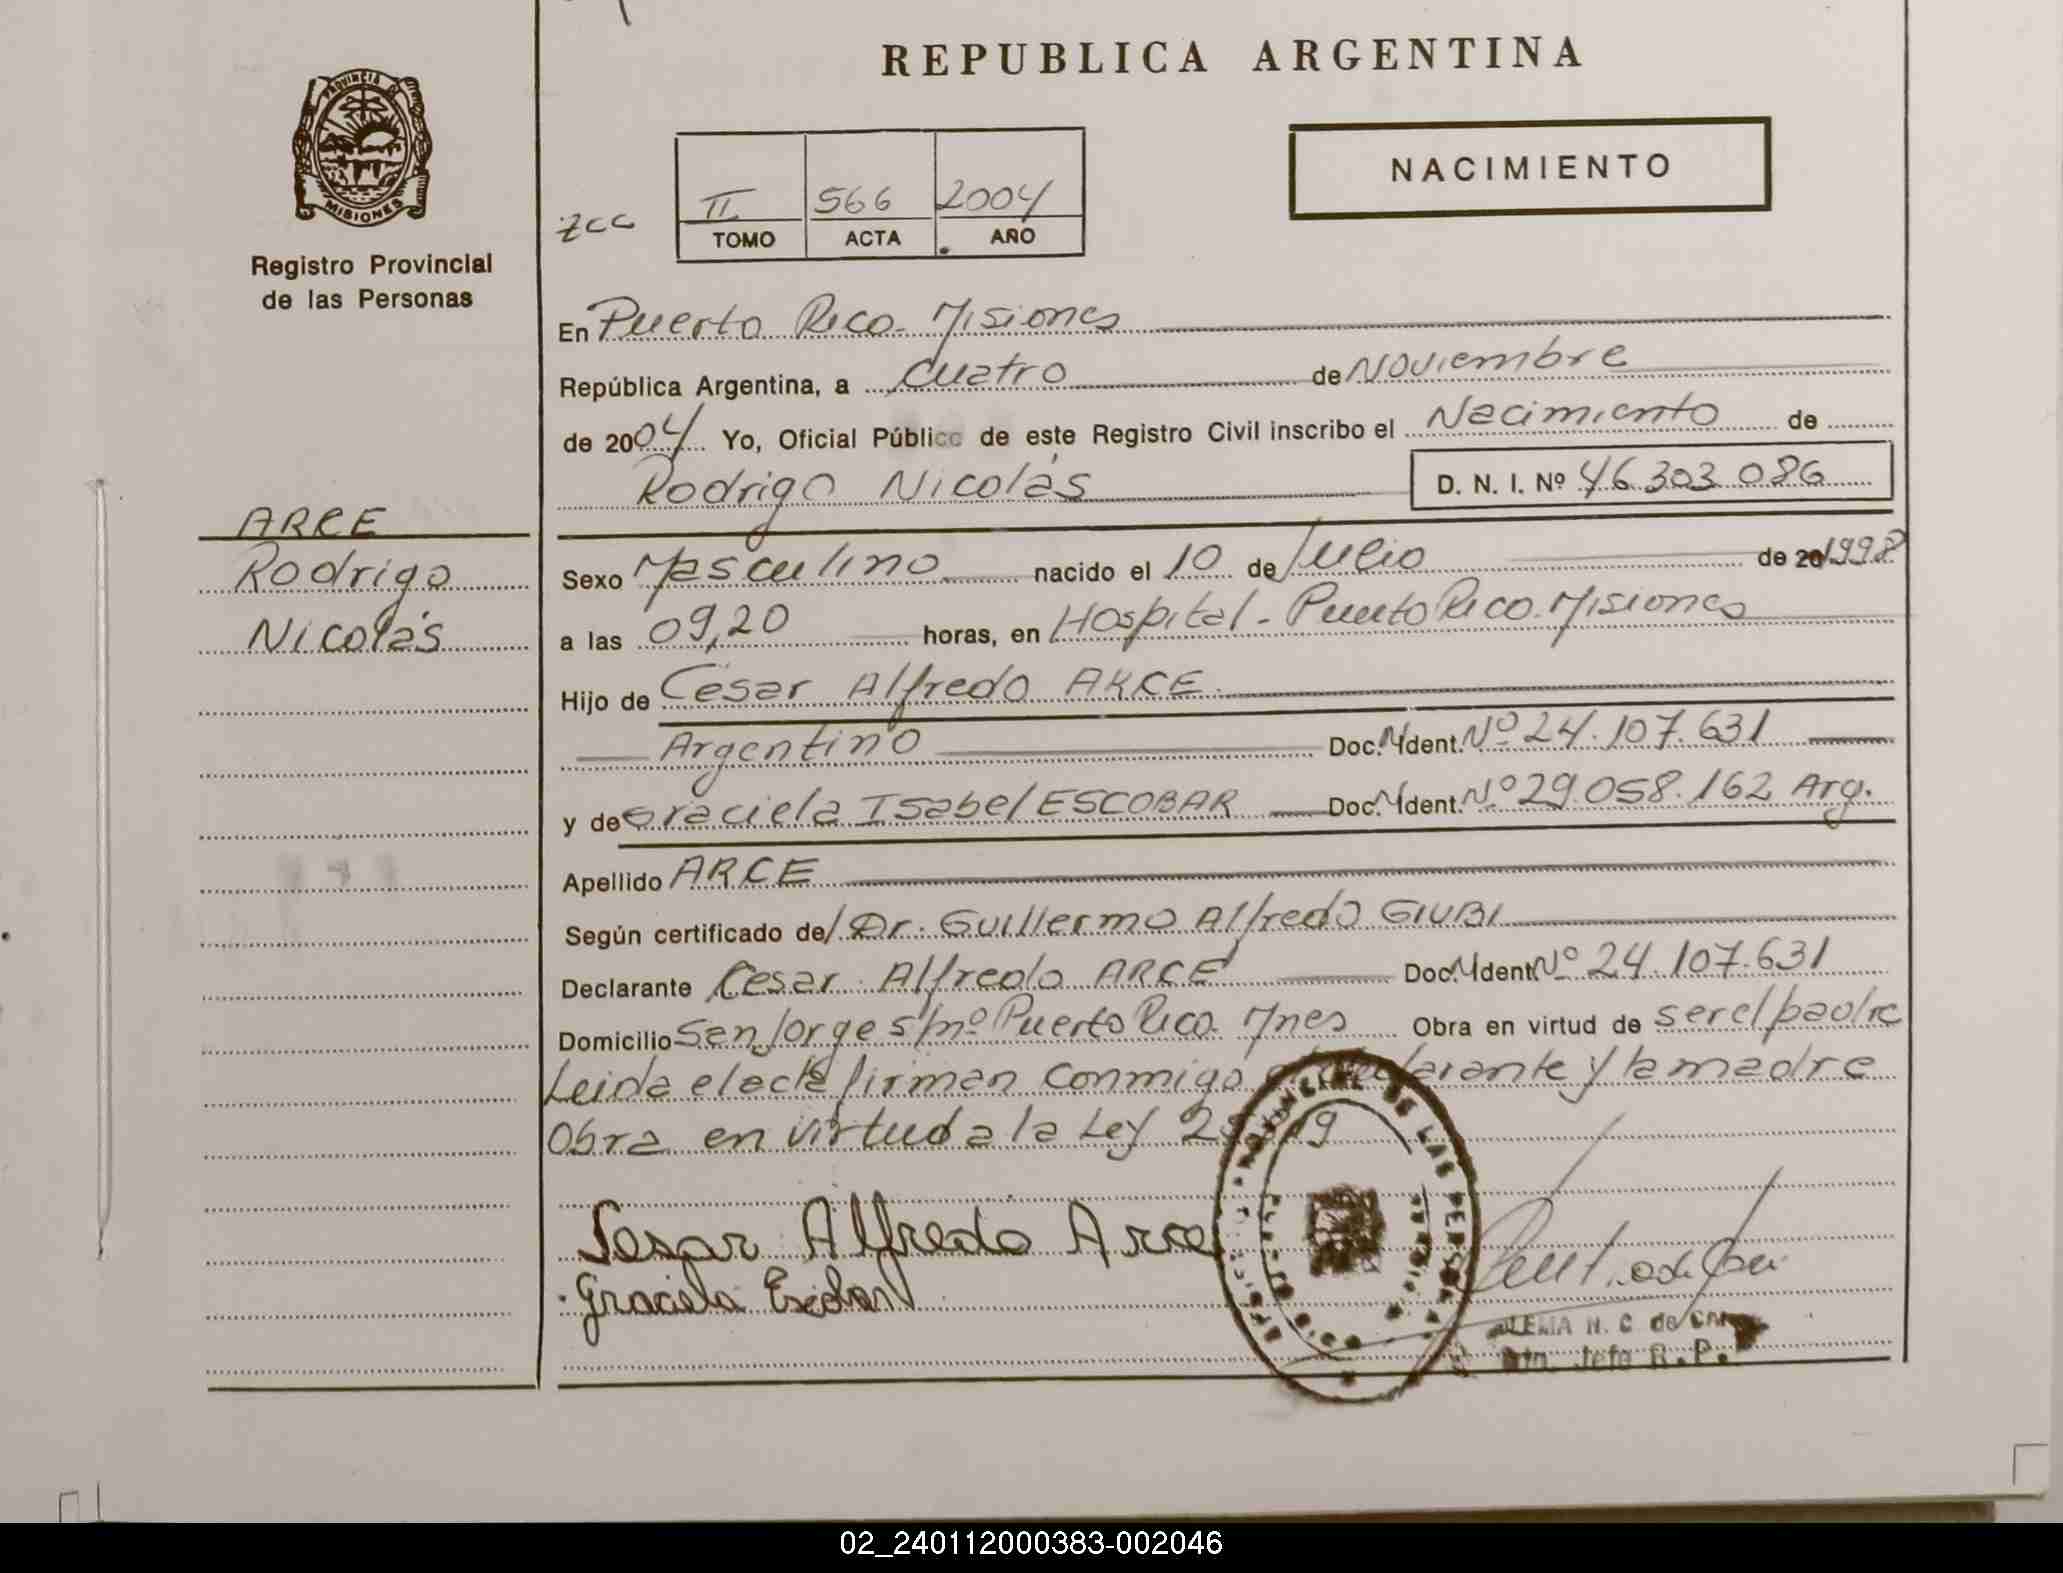 REPUBLICA ARGENTINA
PROVINCIA DE
MISIONES
Registro Provincial
de las Personas
NACIMIENTO
II 566 2004
TOMO ACTA AÑO
ARCE
Rodrigo
Nicolás
En Puerto Rico - Misiones
República Argentina, a Cuatro de Noviembre
de 2004 Yo, Oficial Público de este Registro Civil inscribo el Nacimiento de
Rodrigo Nicolás D. N. I. Nº 46.303.086
Sexo Masculino nacido el 10 de Julio de 20 1998
a las 09,20 horas, en Hospital - Puerto Rico. Misiones
Hijo de César Alfredo ARCE
Argentino Doc. Ident. Nº 24.107.631
y de Graciela Isabel ESCOBAR Doc. Ident. Nº 29.058.162 Arg.
Apellido ARCE
Según certificado de Dr. Guillermo Alfredo GIUBI
Declarante César Alfredo ARCE Doc. Ident Nº 24.107.631
Domicilio San Jorge s/nº Puerto Rico Mnes Obra en virtud de ser el padre
Leida el acta firman conmigo declarante y la madre
Obra en virtud a la Ley
Sesar Alfredo Arce
Graciela Escobar
N. C. de
Jefe R. P.
02_240112000383-002046